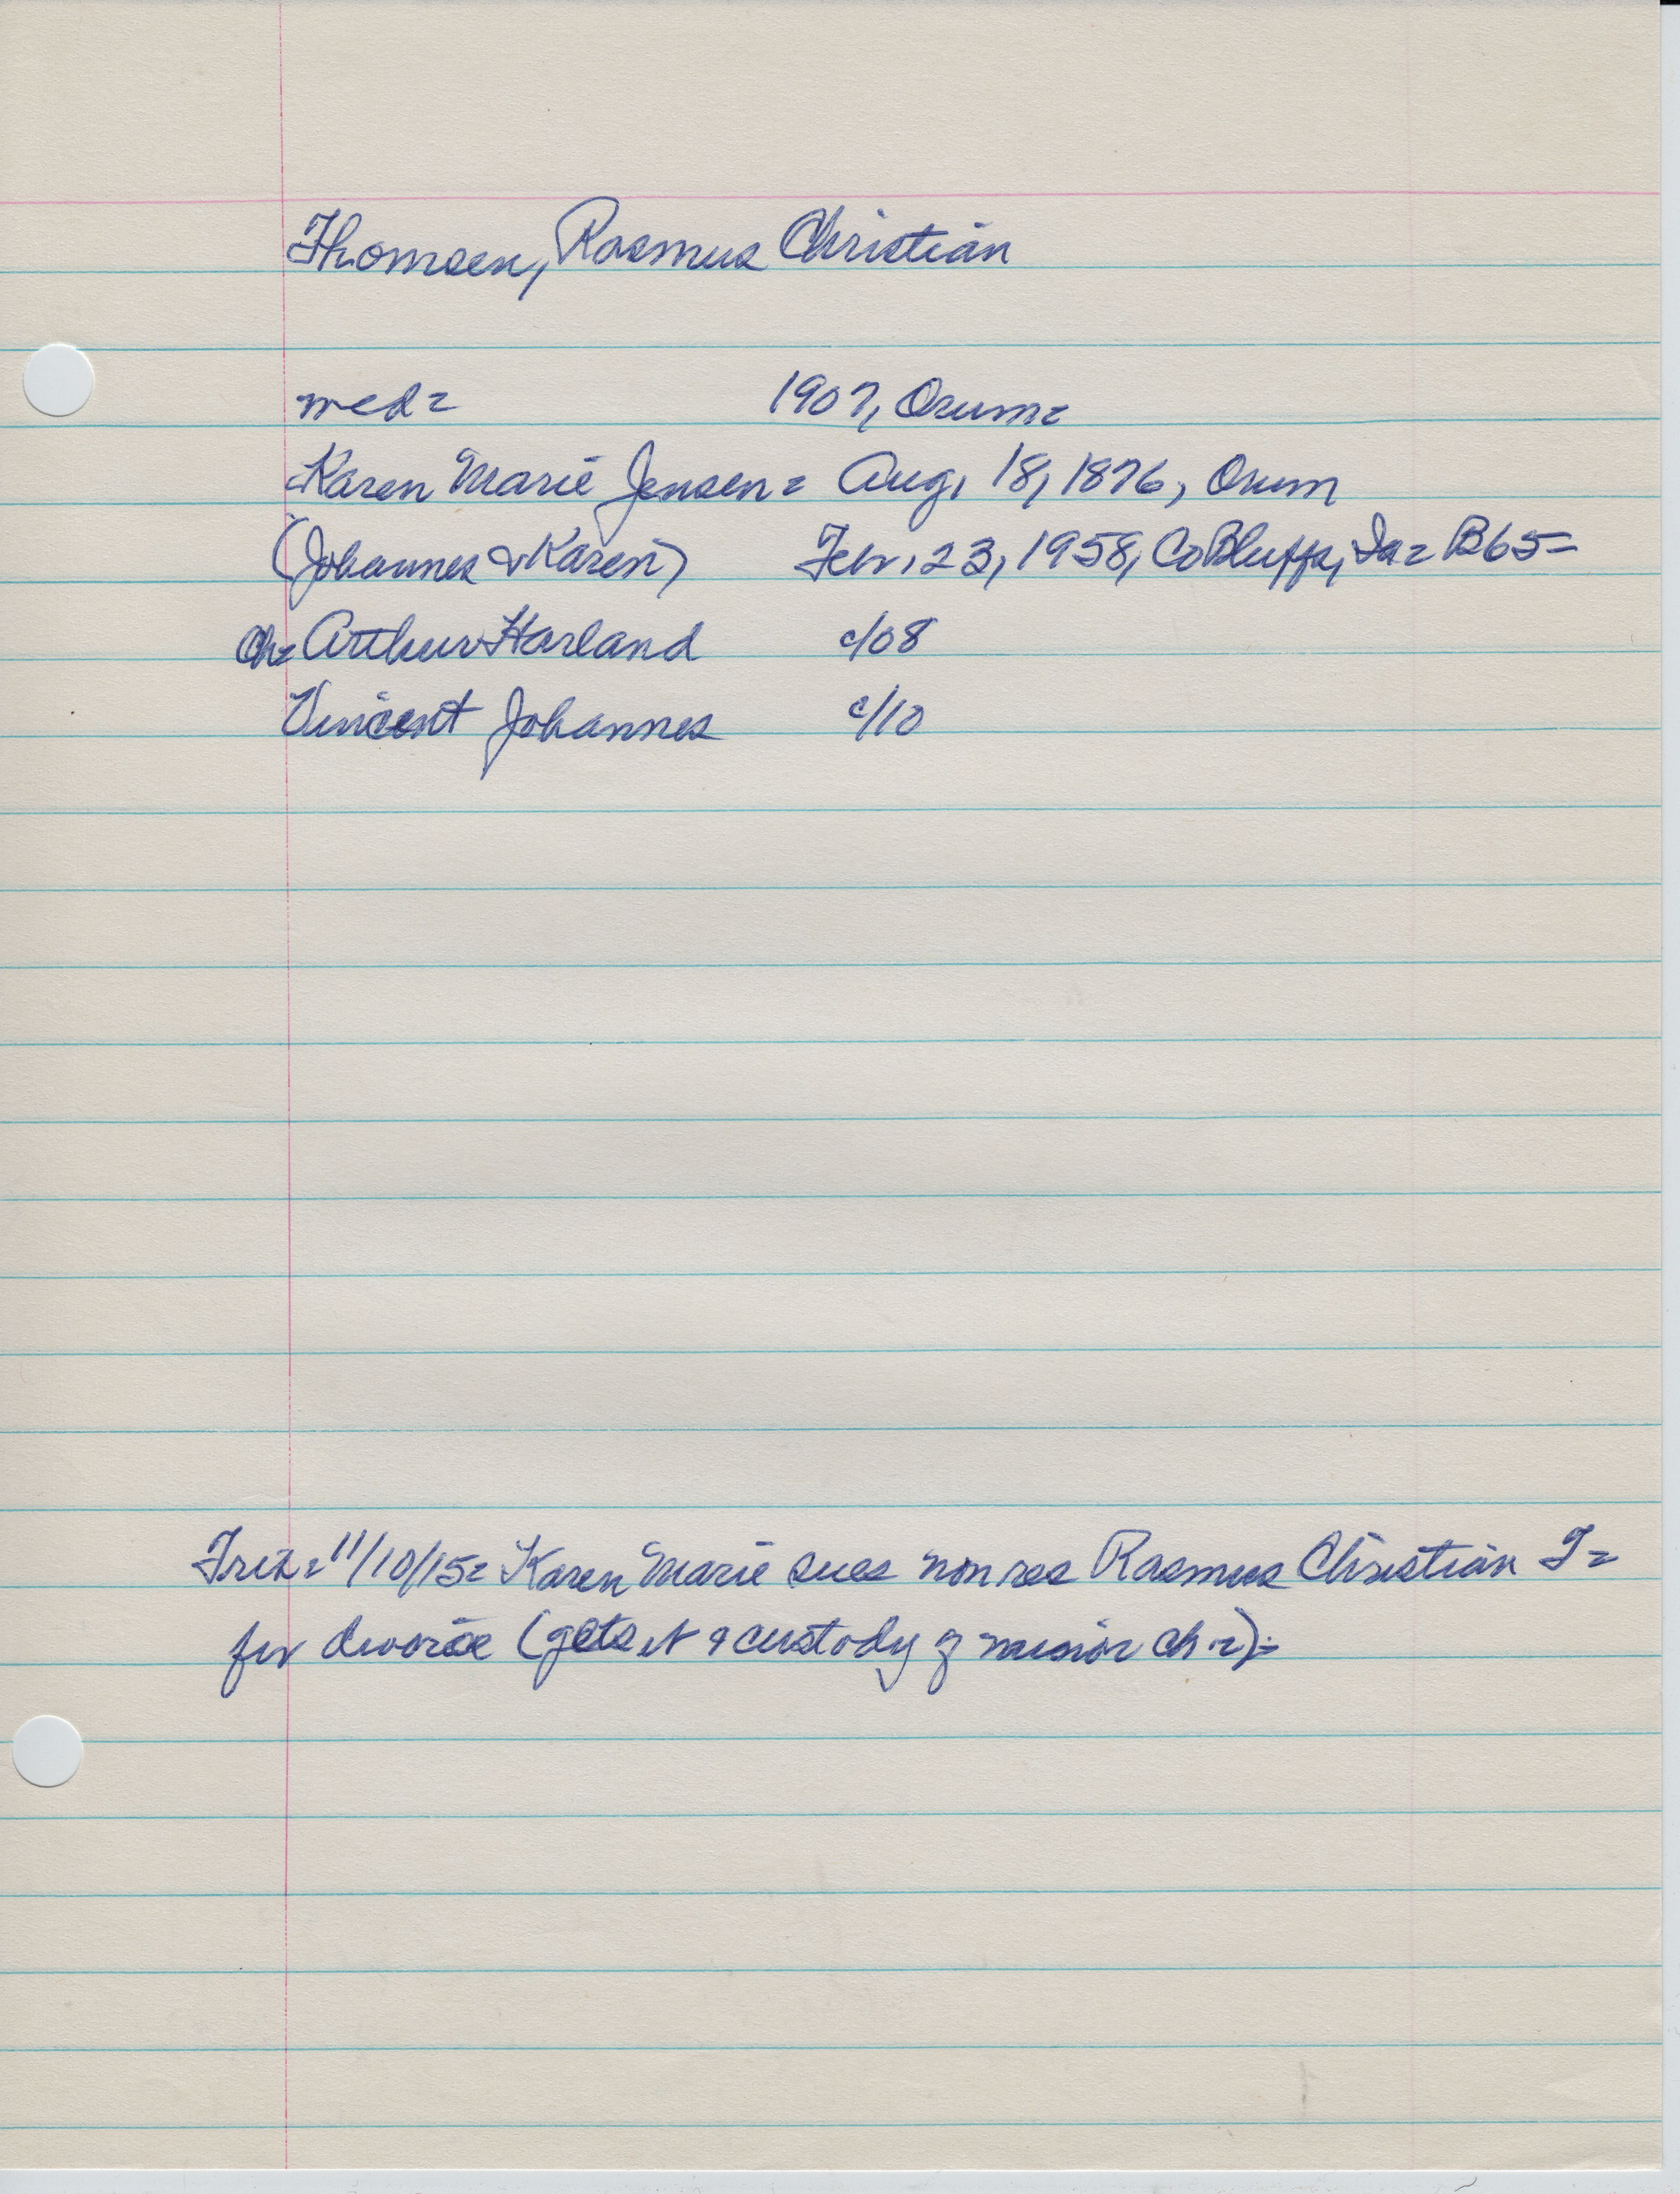 Thomsen, Rasmus Christian
med= 1907, Orum=
Karen Marie Jensen= Aug. 18, 1876, Orum
(Johannes & Karen) Febr. 23, 1958, Co Bluffs, Ia= B65=
Ch= Arthur Harland c/08
Vincent Johannes c/10
11/10/15= Karen Marie sues non res Rasmus Christian T=
for divorce (gets it & custody of minor ch=)=